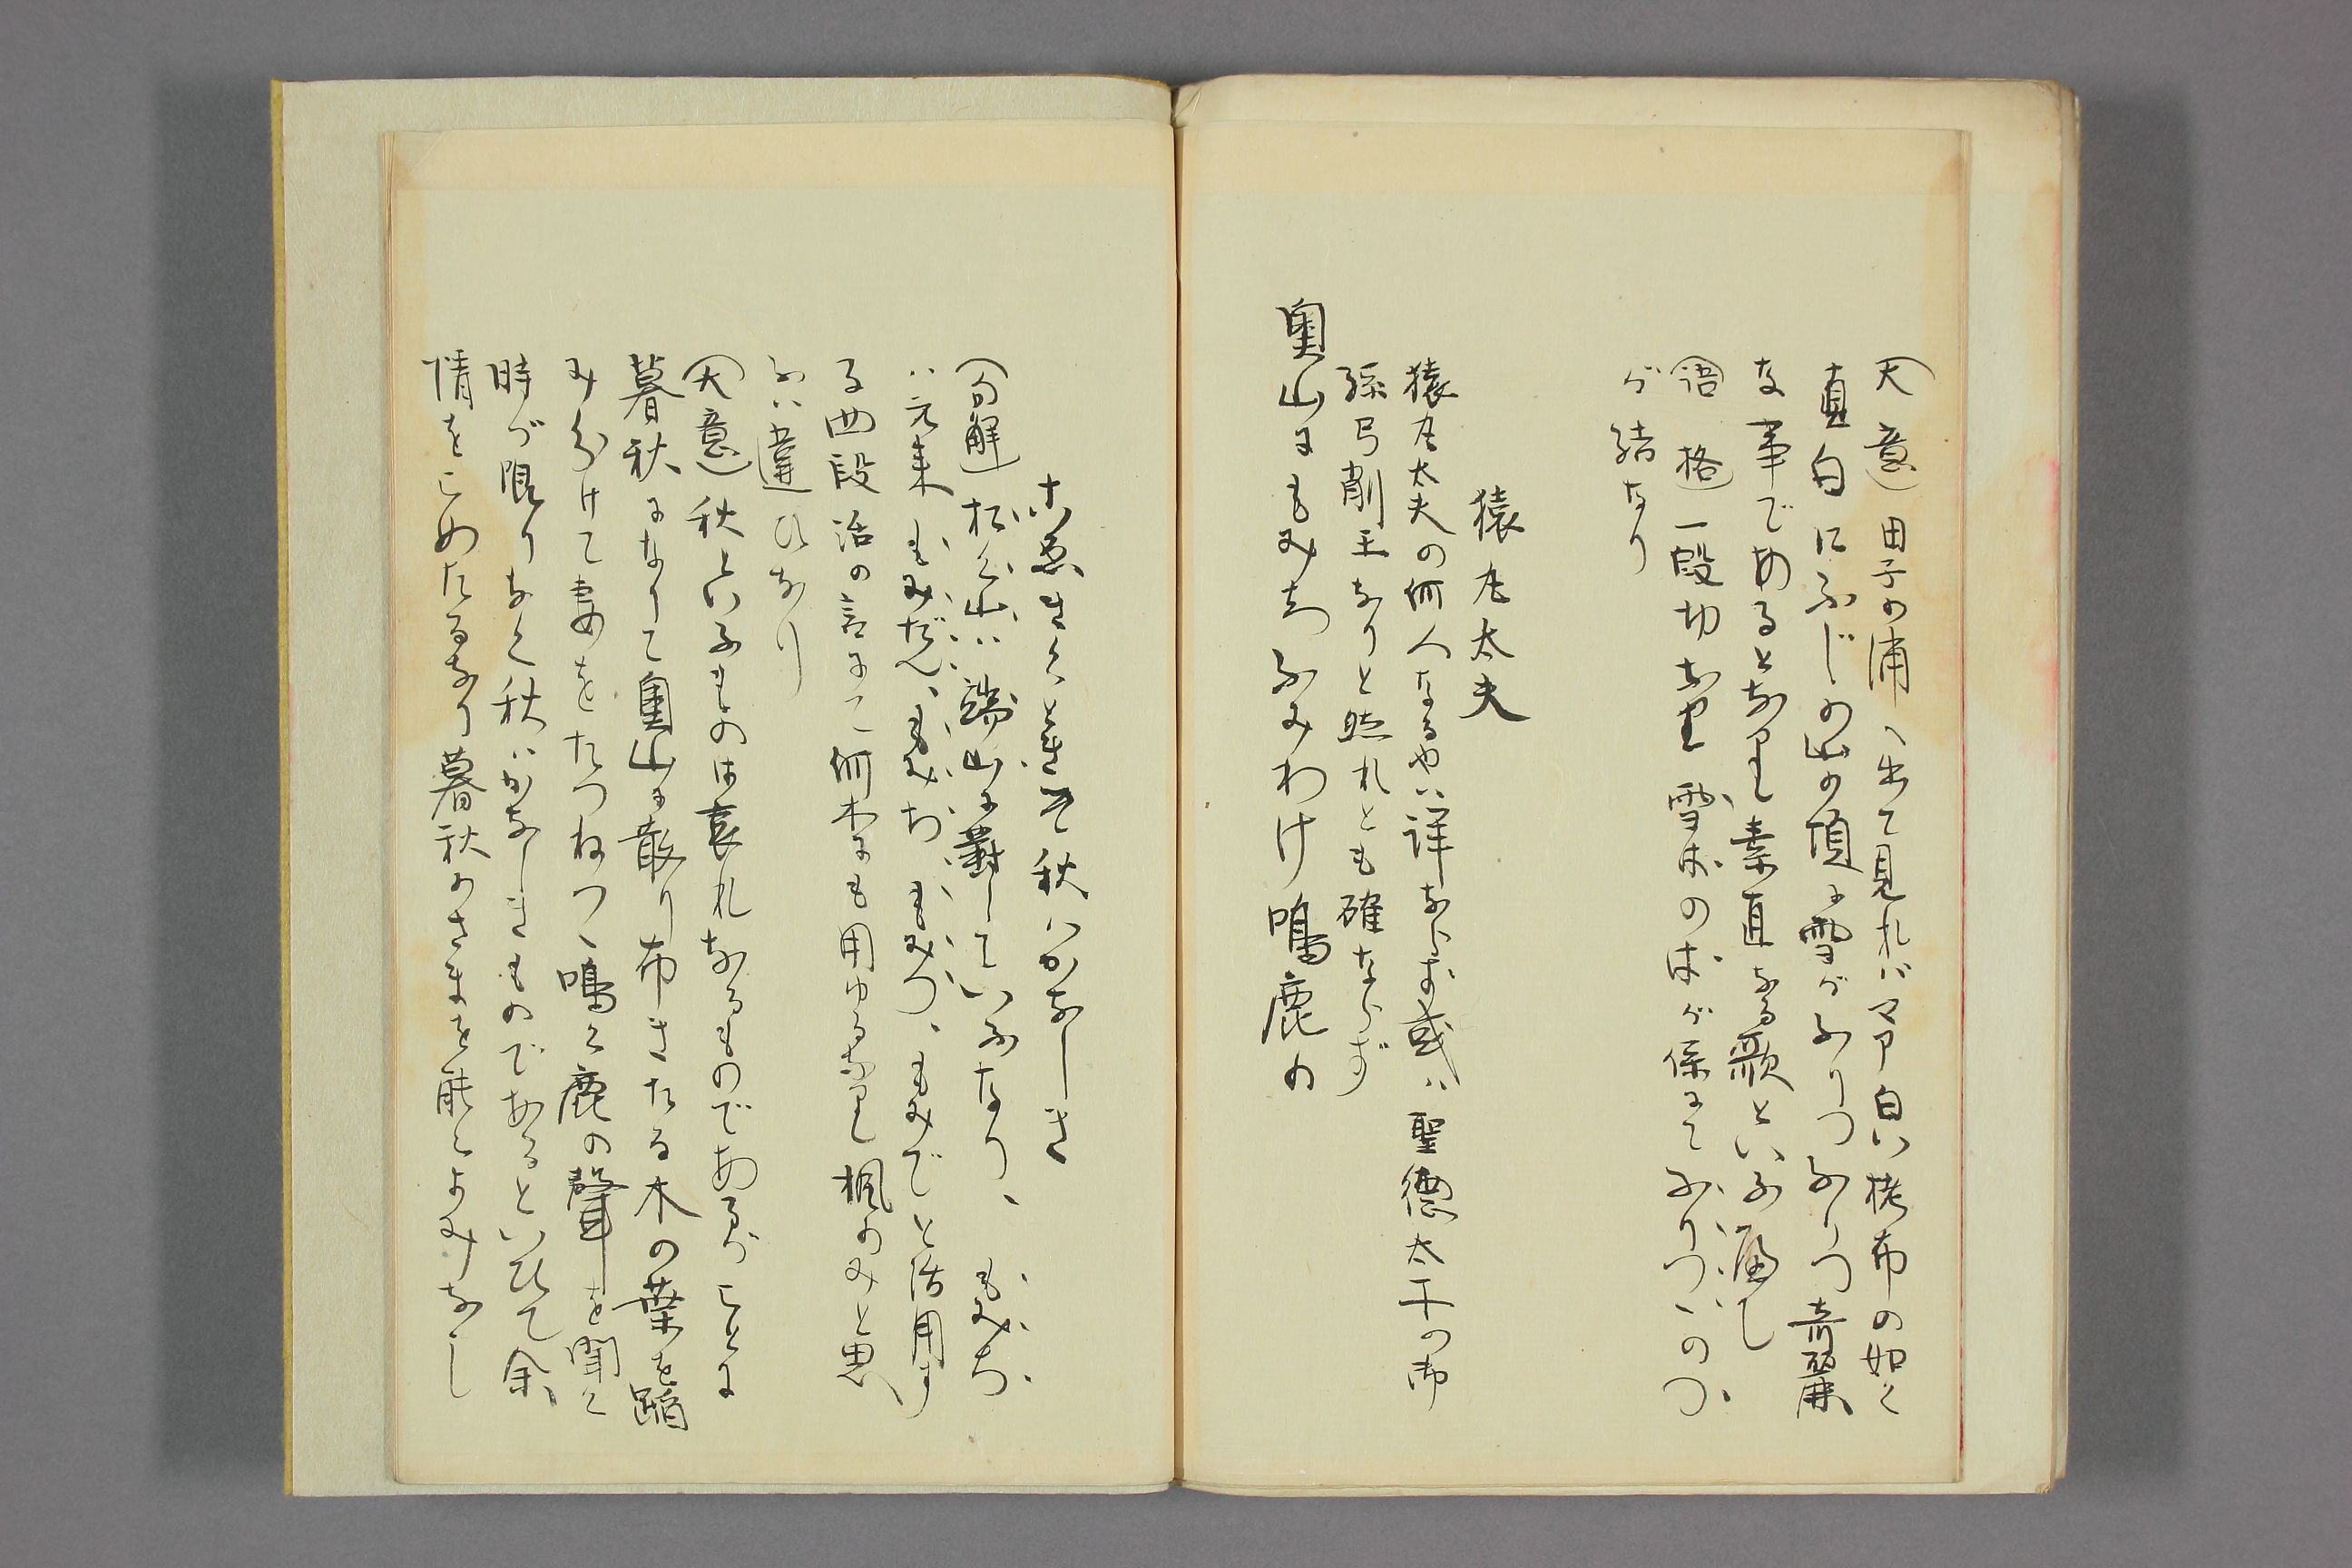 (大意)田子の浦へ出て見れバマア白い栲布の如く
真白にふじの山の頂に雪がふりつふりつ奇麗
な事であるとなり素直なる歌といふべし
(語格)一段切なり雪はのはが係にてふりつゝのつ
が結なり
猿丸太夫
猿丸太夫の何人なるやハ詳ならず或ハ聖徳太子の御
孫弓削王なりと(云)れとも確ならず
奥山にもみちふみわけ鳴鹿の
こゑきくときそ秋ハかなしき
(句解)おく山ハ端山に對していふなり、もみぢ
ハ元来もみだん、もみぢ、もみづ、もみでと活用す
る四段活の言にて何木にも用ゆるなり楓のみと思
ふハ違ひなり
(大意)秋といふものは哀れなるものであるがことに
暮秋になりて奥山に散り布きたる木の葉を踏
み分けて妻をたつねつゝ鳴く鹿の聲を聞く
時が限りなく秋ハかなしきものであるといひて余
情をこめたるなり暮秋のさまを能くよみなし